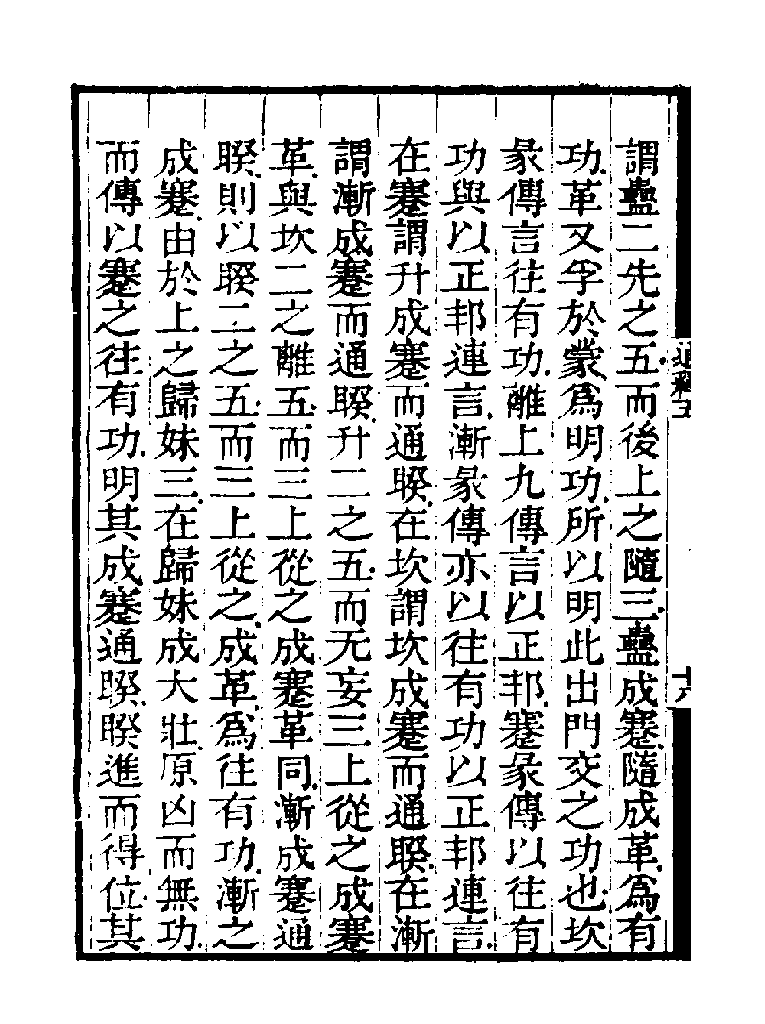 謂蠱二先之五而後上之隨三蠱成蹇隨成革爲有
功革又孚於蒙爲明功所以明此出門交之功也坎
彖傳言往有功離上九傳言以正邦蹇彖傳以往有
功與以正邦連言漸彖傳亦以往有功以正邦連言
在蹇謂升成蹇而通睽在坎謂坎成蹇而通睽在漸
謂漸成蹇而通睽升二之五而无妄三上從之成蹇
革與坎二之離五而三上從之成蹇革同漸成蹇通
睽則以睽二之五而三上從之成革爲往有功漸之
成蹇由於上之歸妹三在歸妹成大壯原凶而無功
而傳以蹇之往有功明其成蹇通睽睽進而得位其
通釋五
十六